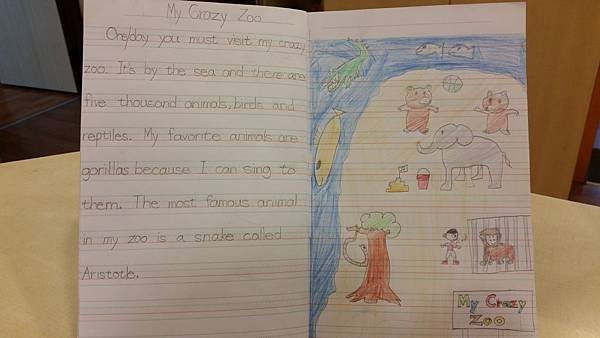 My Crazy Zoo
One day you must visit my crazy
zoo. It's by the sea and there are
five thousand animals, birds and
reptiles. My favorite animals are
gorillas because I can sing to
them. The most famous animal
in my zoo is a snake called
Aristotle.
My Crazy
Zoo